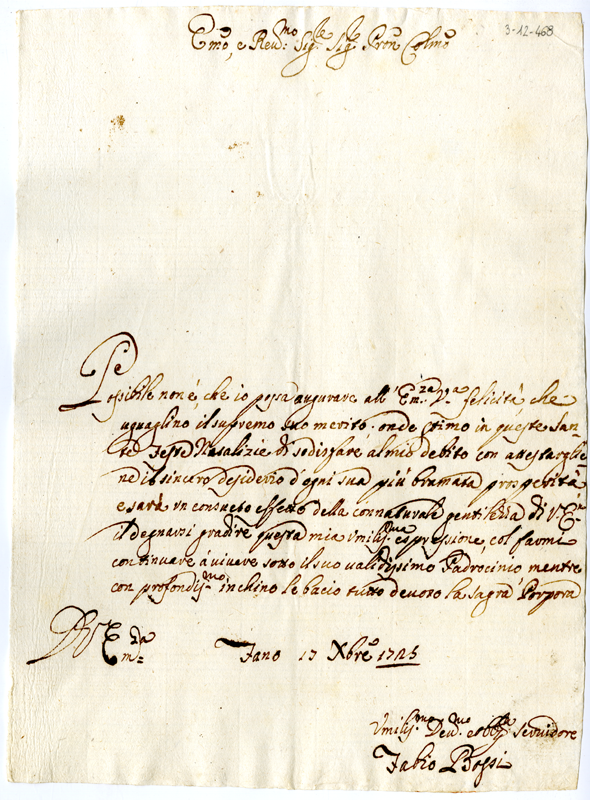 3-12-468
Emo, e Reud:mo Sigre Sigre Pron Colmo
Se
Possibile non é, che io possa augurare all' Em:za Va felicità, che
uguaglino il supremo suo merito. onde stimo in queste San-
te Feste Natalizie di sodisfare al mio debito con attestarglie
ne il sincero desiderio d'ogni sua più bramata prosperità
e sarà un consueto effetto della connaturale gentilezza di V: Em
il degnarsi gradire questa mia umilis:ma espressione, col farmi
continuare à uiuere sotto il suo validissimo Padrocinio, mentre
con profondis:mo inchino le bacio tutto deuoto la sagra Porpora
Di V: Em:za
Fano 17 Xbre 1725
Vmilis:mo Deu:mo et obb: Seruidore
Fabio Bossi